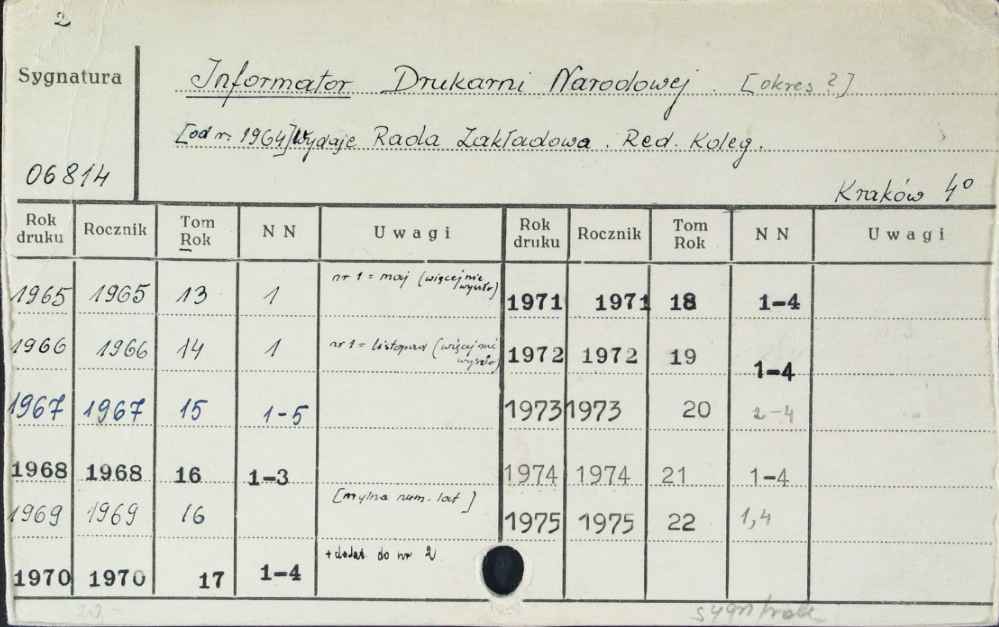 2
Sygnatura
Informator Drukarni Narodowej. [okres?]
[od r. 1964] Wydaje Rada Zakładowa. Red. Koleg.
06814
Kraków 4°
Rok druku Rocznik Tom Rok NN Uwagi Rok druku Rocznik Tom Rok NN Uwagi
1965 1965 13 1 nr 1 = maj (więcej nie wyszło) 1971 1971 18 1-4
1966 1966 14 1 nr 1 = listopad (więcej nie wyszło) 1972 1972 19 1-4
1967 1967 15 1-5 1973 1973 20 2-4
1968 1968 16 1-3 1974 1974 21 1-4
1969 1969 16 [mylna num. lat] 1975 1975 22 1,4
1970 1970 17 1-4 + dodat. do nr 2